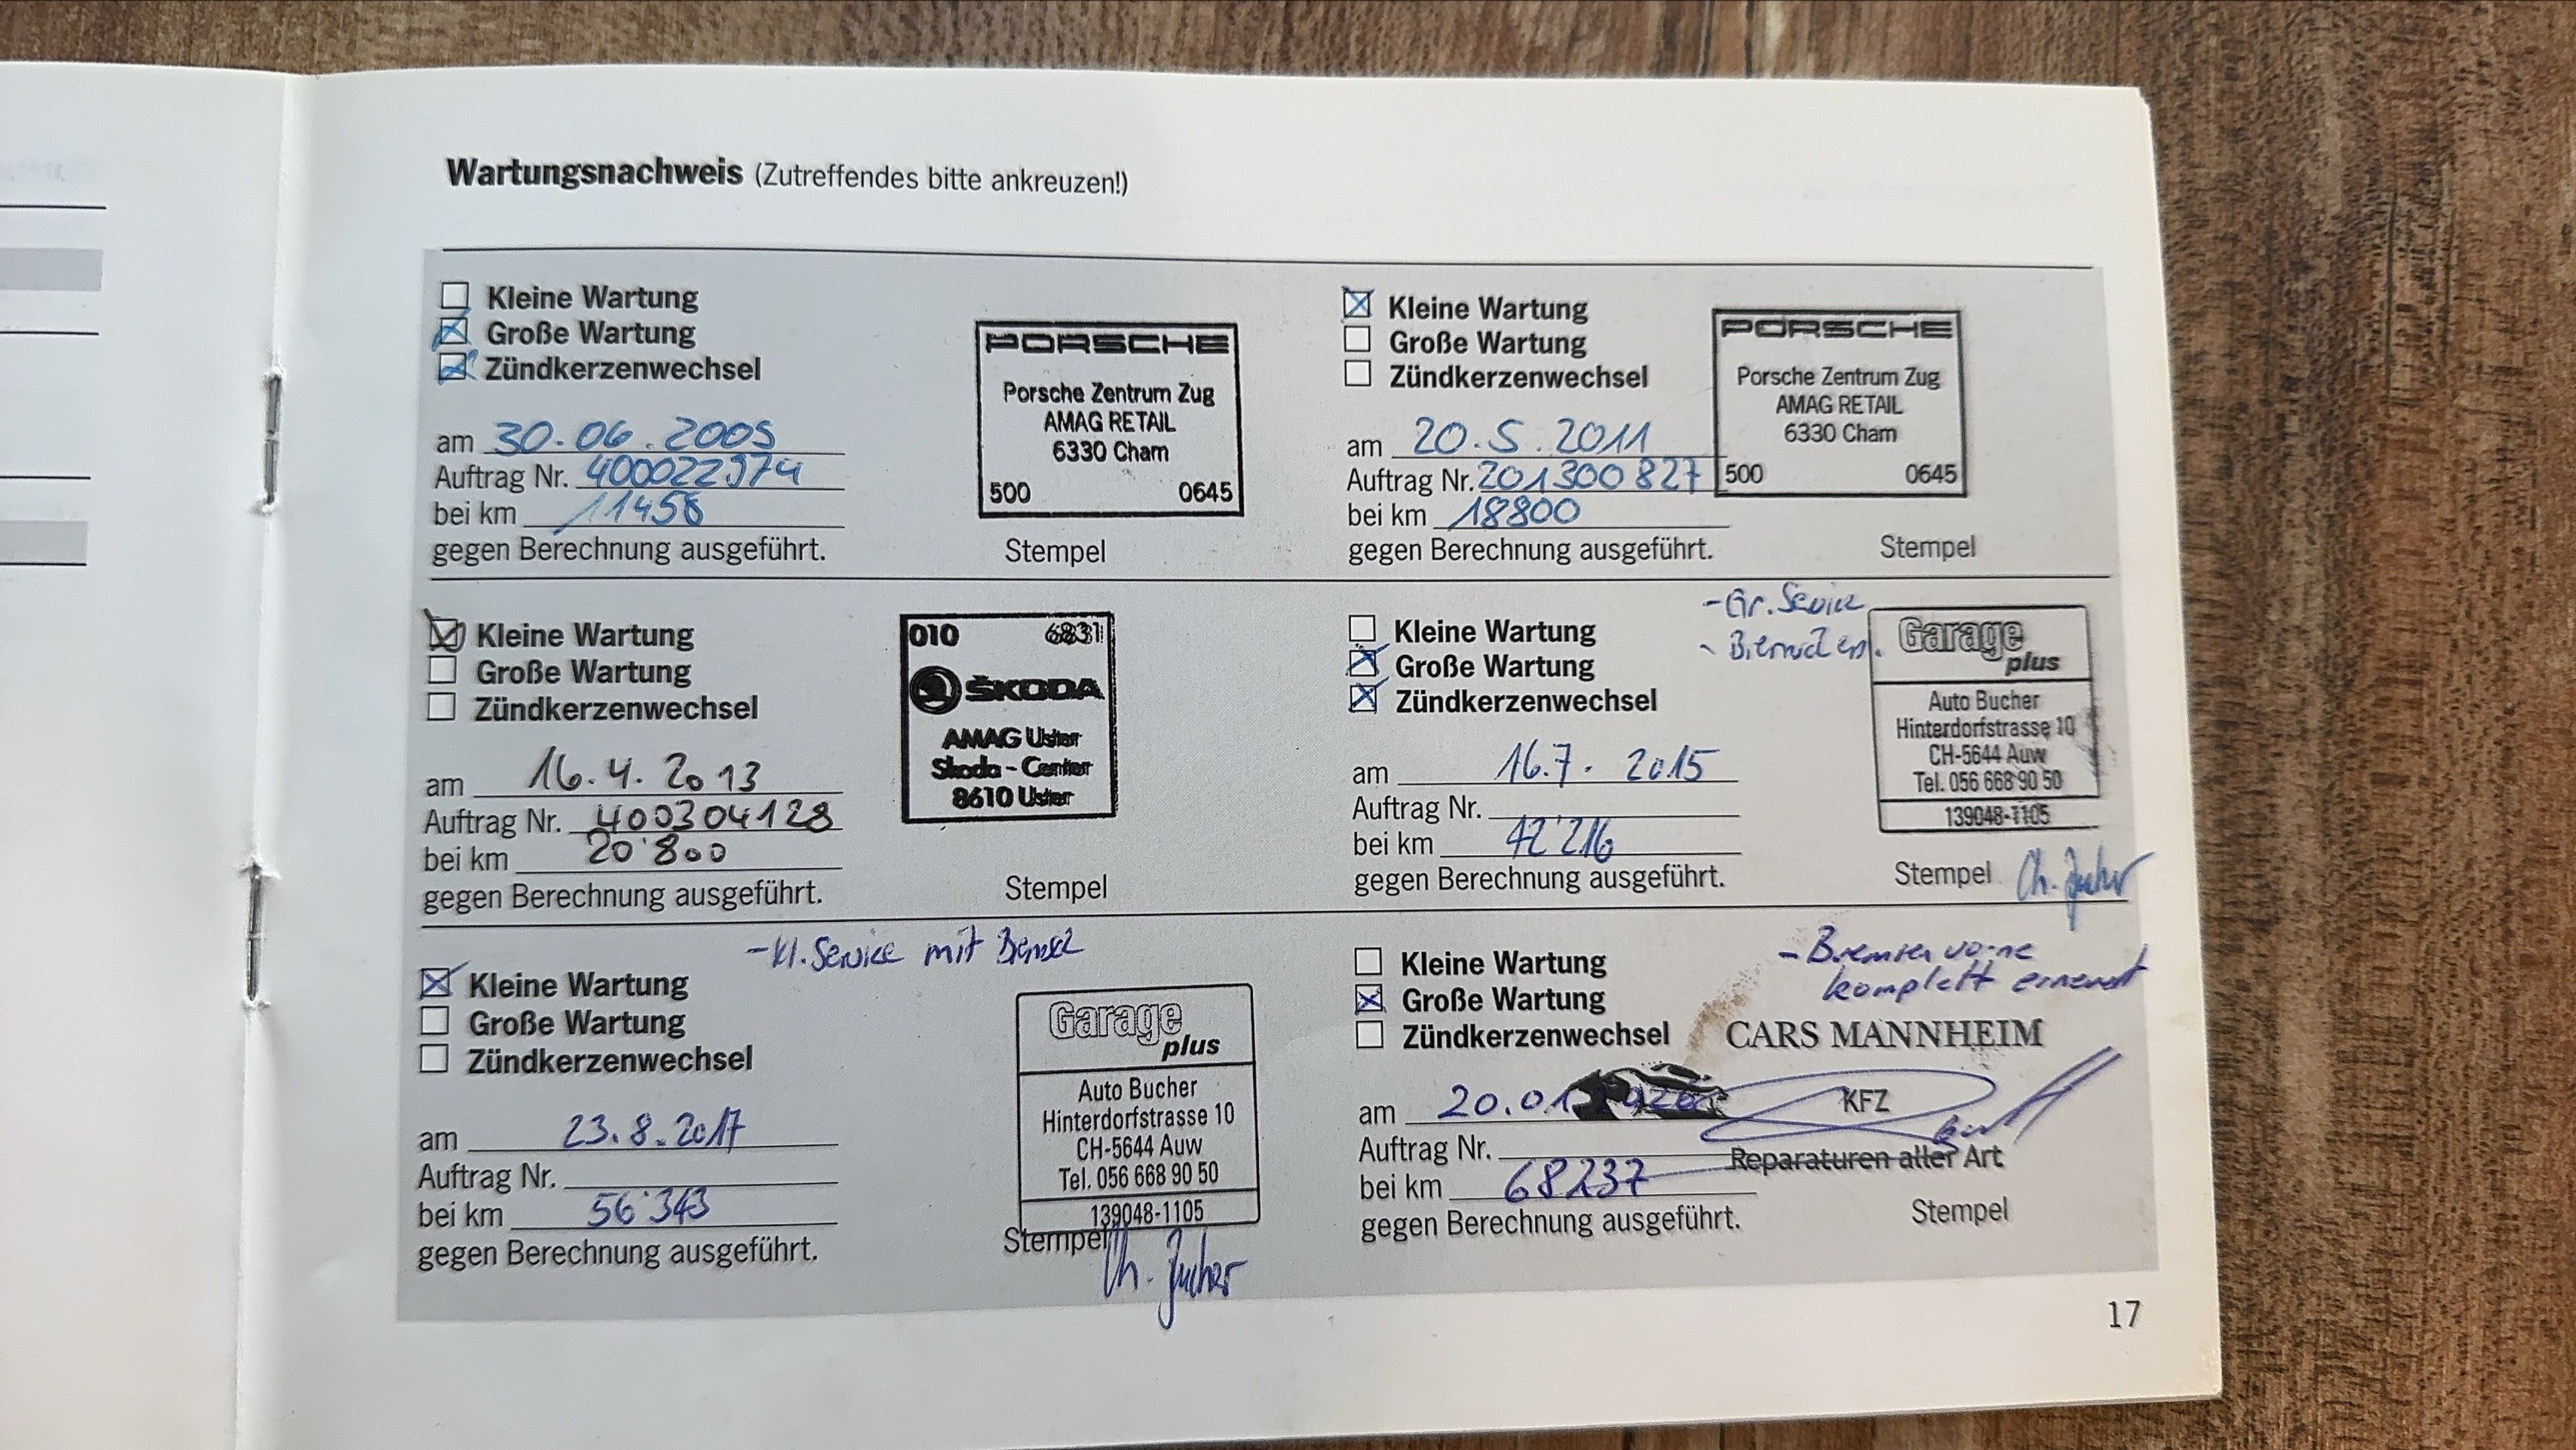 Wartungsnachweis (Zutreffendes bitte ankreuzen!)
Kleine Wartung
Große Wartung
Zündkerzenwechsel
am 30.06.2005
Auftrag Nr. 400022974
bei km 11458
gegen Berechnung ausgeführt.
PORSCHE
Porsche Zentrum Zug
AMAG RETAIL
6330 Cham
500 0645
Stempel
Kleine Wartung
Große Wartung
Zündkerzenwechsel
am 20.5.2011
Auftrag Nr. 201300827
bei km 18800
gegen Berechnung ausgeführt.
PORSCHE
Porsche Zentrum Zug
AMAG RETAIL
6330 Cham
500 0645
Stempel
Kleine Wartung
Große Wartung
Zündkerzenwechsel
am 16.4.2013
Auftrag Nr. 400304128
bei km 20'800
gegen Berechnung ausgeführt.
010 6831
ŠKODA
AMAG Uster
Skoda-Center
8610 Uster
Stempel
- Gr. Service
Kleine Wartung
Große Wartung
Zündkerzenwechsel
am 16.7.2015
Auftrag Nr.
bei km 42'216
gegen Berechnung ausgeführt.
Garage
plus
Auto Bucher
Hinterdorfstrasse 10
CH-5644 Auw
Tel. 056 668 90 50
139048-1105
Stempel
- Kl. Service mit
Kleine Wartung
Große Wartung
Zündkerzenwechsel
am 23.8.2017
Auftrag Nr.
bei km 56'343
gegen Berechnung ausgeführt.
Garage
plus
Auto Bucher
Hinterdorfstrasse 10
CH-5644 Auw
Tel. 056 668 90 50
139048-1105
Stempel
- Bremsen vorne
komplett erneuert
Kleine Wartung
Große Wartung
Zündkerzenwechsel
am 20.01
Auftrag Nr.
bei km 68237
gegen Berechnung ausgeführt.
CARS MANNHEIM
KFZ
Reparaturen aller Art
Stempel
17